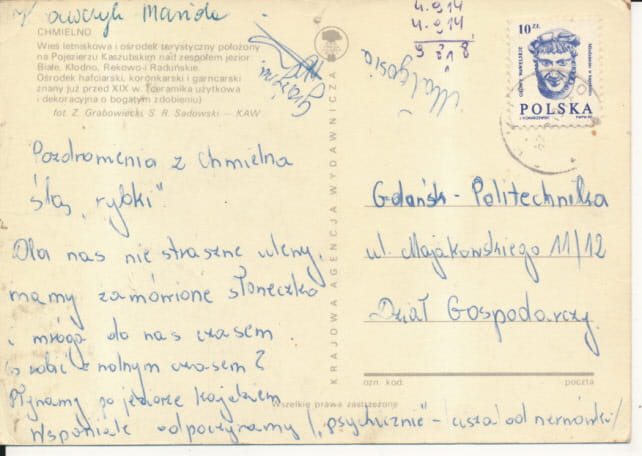 Mariola
CHMIELNO
Wieś letniskowa i ośrodek turystyczny położony
na Pojezierzu Kaszubskim nad zespołem jezior
Białe, Kłodno, Rekowo i Raduńskie.
Ośrodek hafciarski, koronkarski i garncarski
znany już przed XIX w. (ceramika użytkowa
i dekoracyjna o bogatym zdobieniu)
fot. Z. Grabowiecki, S. R. Sadowski — KAW
Grażyna
Małgosia
4.914
4.914
9 8 2 8
10 ZŁ
POLSKA
Pozdrowienia z Chmielna
ślą „rybki".
Dla nas nie straszne ulewy,
mamy zamówione słoneczko
i mruga do nas czasem.
Co robić z wolnym czasem?
Pływamy po jeziorze kajakiem
Wspaniale odpoczywamy /„psychicznie" - cisza od nerwówki/
KRAJOWA AGENCJA WYDAWNICZA
Gdańsk - Politechnika
ul. Majakowskiego 11/12
Dział Gospodarczy
ozn. kod. poczta
Wszelkie prawa zastrzeżone